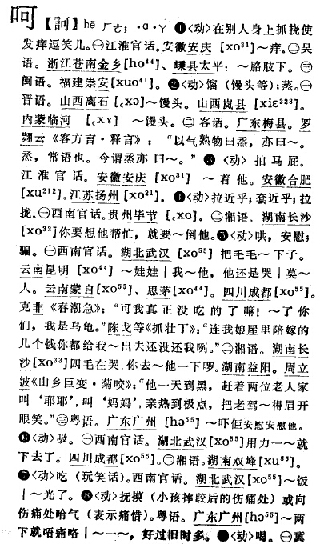 呵 【訶】hē ㄏㄜ · ❶〈动〉在别人身上抓挠使
发痒逗笑儿。㊀江淮官话。安徽安庆[xo³¹]～痒。㊁吴
语。浙江苍南金乡[ho⁴⁴]、嵊县太平：～胳肢下。㊂
闽语。福建崇安[xuo⁵¹]。❷〈动〉馏（馒头等）；蒸。㊀
晋语。山西离石[xɔ]～馒头。山西岚县[xiɛ²²³]。
内蒙临河[xʏ]～馒头。㊁客话。广东梅县。罗
翙云《客方言·释言》：“以气熱物曰烝，亦曰～。
烝，常语也。今谓烝亦曰～。”❸〈动〉拍马屁。
江淮官话。安徽安庆[xo³¹]～有他。安徽合肥
[xu²¹²]。江苏扬州[xo²¹]。❹〈动〉拉近乎；套近乎；拉
拢。㊀西南官话。贵州毕节[xo]。㊁湘语。湖南长沙
[xo³³]你要想他帮忙，就要～倒他。❺〈动〉哄，安慰；
骗。㊀西南官话。湖北武汉[xo⁵⁵]把毛毛～下子。
云南昆明[xo⁴⁴]～娃娃｜我～他，他还是哭｜莫～
人。云南蒙自[xo⁵⁵]、思茅[xo⁴⁴]。四川成都[xo⁵⁵]。
克非《春潮急》：“可我真正没吃的了嘛！～了你
们，我是乌龟。”陈戈等《抓壮丁》：“连我娘屋里陪嫁的
几个钱你都给我～出大还没还我咧。”㊁湘语。湖南长
沙[xo³³]四毛在哭，你去～他一下啰。湖南益阳。周立
波《山乡巨变·菊咬》：“他一天到黑，赶着两位老人家
叫‘耶耶’，叫‘妈妈’，亲热到极点，把老驾～得眉开
眼笑。”㊂粤语。广东广州[hɔ⁵⁵]～吓佢安慰安慰他。
❻〈动〉吸。㊀西南官话。湖北武汉[xo⁵⁵]用力一～就
下去了。四川成都[xo⁵⁵]。㊁湘语。湖南双峰[xu⁵⁵]。
❼〈动〉吃（玩笑话）。西南官话。湖北武汉[xo⁵⁵]～饭
｜～光了。❽〈动〉抚摸（小孩摔跤后的伤痛处）或向
伤痛处哈气（表示痛惜）。粤语。广东广州[hɔ⁵⁵]～两
下就唔痛咯｜～一～，好过旧时多。❾〈动〉喝。㊀冀